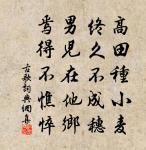 高田種小麦
終久不成穗
男兒在他鄉
焉得不憔悴
古歌詞典網集